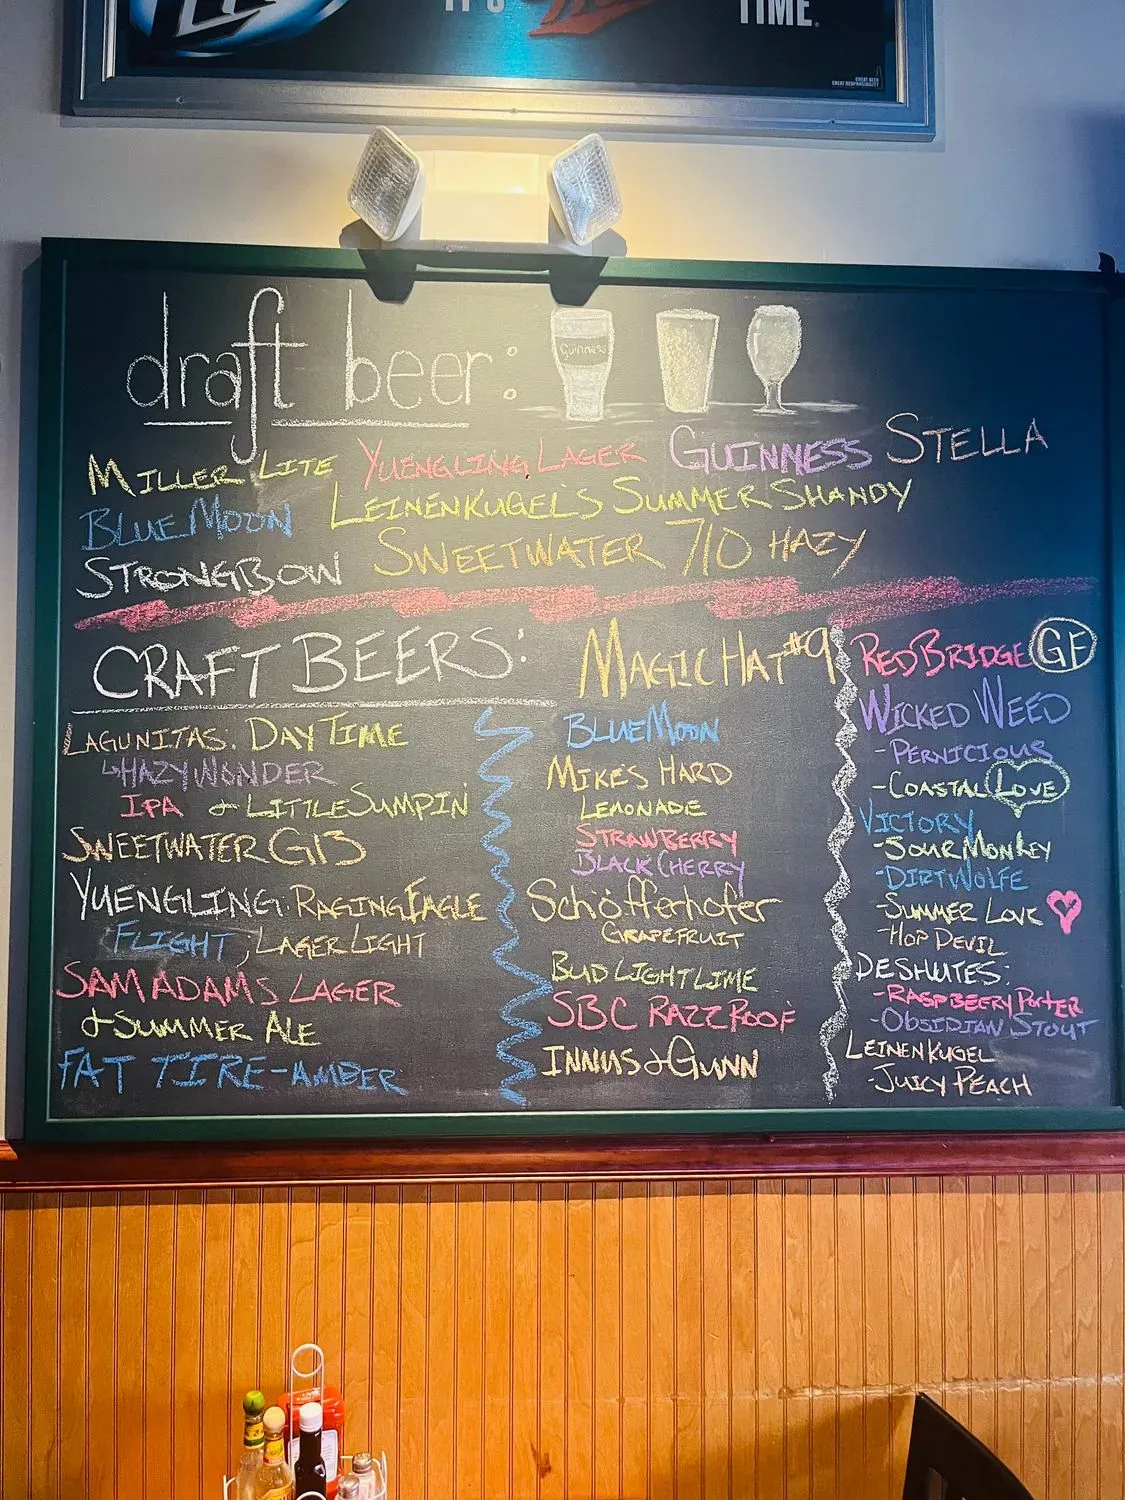 IT'S
TIME.
GREAT BEER
GREAT RESPONSIBILITY
draft beer:
Guinness
MILLER LITE YUENGLING LAGER GUINNESS STELLA
BLUE MOON LEINENKUGEL'S SUMMER SHANDY
STRONGBOW SWEETWATER 710 HAZY
CRAFT BEERS:
LAGUNITAS: DAYTIME
↳HAZYWONDER
IPA & LITTLE SUMPIN'
SWEETWATER G13
YUENGLING: RAGING EAGLE
FLIGHT; LAGER LIGHT
SAM ADAMS LAGER
& SUMMER ALE
FAT TIRE-AMBER
MAGIC HAT #9
BLUE MOON
MIKE'S HARD
LEMONADE
STRAWBERRY
BLACK CHERRY
Schöfferhofer
GRAPEFRUIT
BUD LIGHT LIME
SBC RAZZ ROOF
INNIS & GUNN
RED BRIDGE GF
WICKED WEED
- PERNICIOUS
- COASTAL LOVE
VICTORY
- SOUR MONKEY
- DIRTWOLFE
- SUMMER LOVE
- HOP DEVIL
DESHUTES:
- RASPBEERY PORTER
- OBSIDIAN STOUT
LEINENKUGEL
- JUICY PEACH